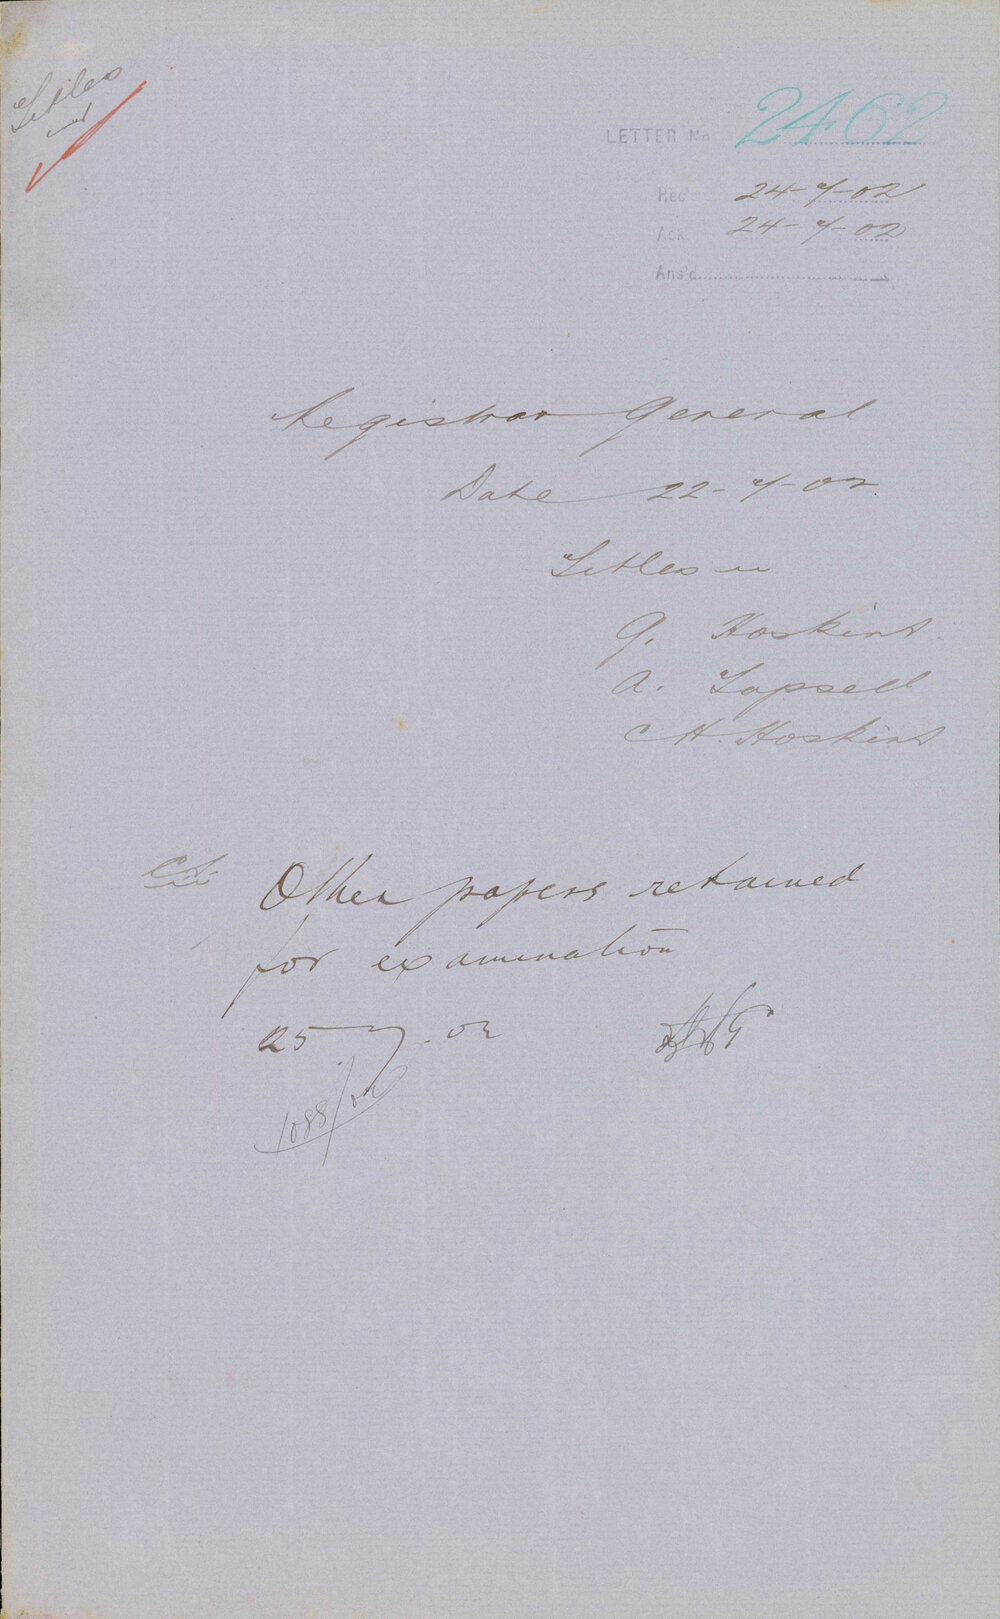 Titles
LETTER No 2462
Rec 24-7-02
Ack 24-7-02
Ans'd
Registrar General
Date 22-7-02
Titles
G. Hoskins
A. Tapsell
C H. Hoskins
Other papers retained
for examination
25.7.02
1088/02